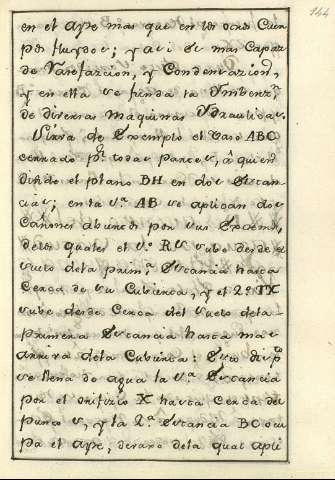 144
en el ayre mas que en los otros Cuer
pos fluydos; y asi es mas Capaz
de Rarefaccion, y Condensazion,
y en ella se funda la Ymbenz.n
de diversas maquinas Ydraulicas.
Sirva de Exemplo el Vaso ABC
cerrado p.r todas partes, â quien
divide el plano BH en dos Estan
cias; en la 1.a AB se aplican dos
Cañones abiertos por sus Extrem.s
delos quales el 1.o RS sube desde el
suelo dela prim.a Estancia hasta
Cerca de su Cubierta, y el 2.o TX
sube desde Cerca del suelo dela
primera Estancia hasta mas
arriva dela Cubierta:
se llena de agua la 1.a Estancia
por el orifizio X hasta Cerca del
punto S, y la 2.a Estancia BC ocu
pa el ayre, dentro dela qual apli